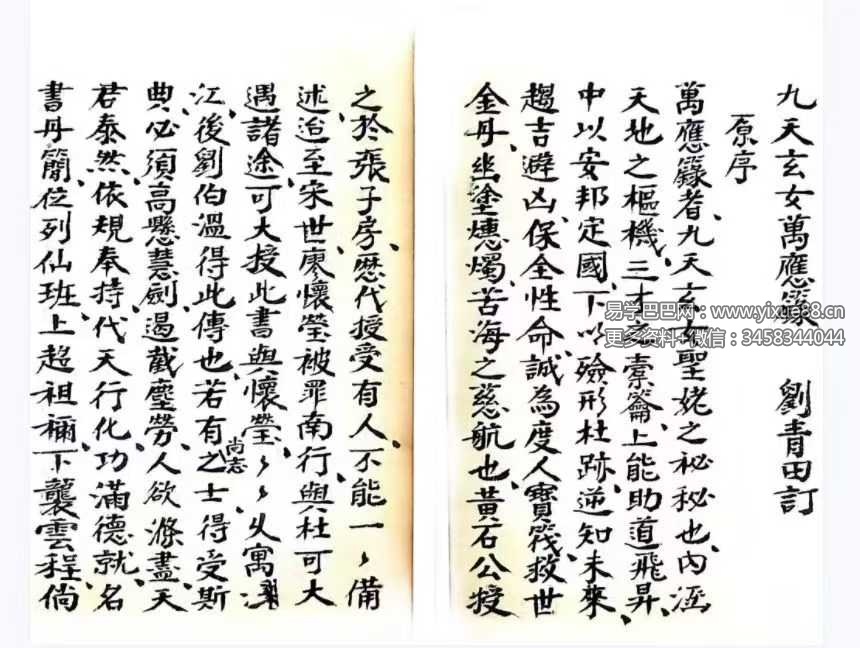 九天玄女萬應籙 劉青田訂
原序
萬應籙者、九天玄女聖姥之祕秘也、內涵
天地之樞機、三才之橐籥、上能助道飛昇、
中以安邦定國、下以殮形杜跡、逆知未來、
趨吉避凶、保全性命、誠為度人寶筏、救世
金丹、幽塗燻燭、苦海之慈航也、黃石公授
之於張子房、歷代授受有人、不能一〻備
述、迨至宋世、廖懷瑩被罪南行、與杜可大
遇諸途、可大授此書與懷瑩、〻〻乆寓漢
江、後劉伯溫得此傳也、若有尚志之士得受斯
典、必須高懸慧劍、遏截塵勞、人欲滌盡、天
君泰然、依規奉持、代天行化、功滿德就、名
書丹簡、位列仙班、上超祖禰、下襲雲程、倘
易学巴巴网：www.yixue88.cn
更多资料+微信：3458344044